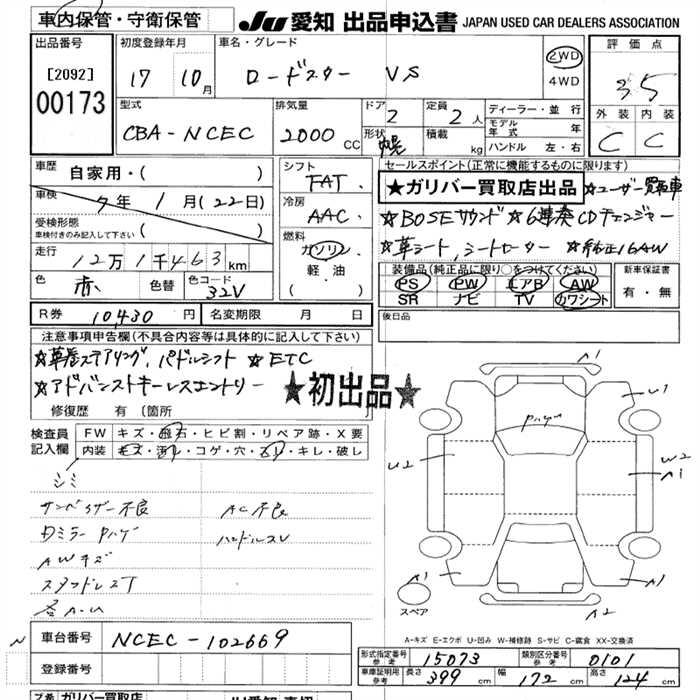 車内保管・守衛保管
JU 愛知 出品申込書 JAPAN USED CAR DEALERS ASSOCIATION
出品番号
[2092]
00173
初度登録年月
17 10月
車名・グレード
ロードスター VS
2WD
4WD
評価点
3.5
外装 内装
C C
型式
CBA-NCEC
排気量
2000 CC
ドア
2
形状
幌
定員
2人
積載
kg
ディーラー・並行
モデル年式 年
ハンドル 左・右
車歴
自家用・( )
車検
年 1月(22日)
受検形態
車検付きのみ記入して下さい ( )
走行
12万1千463km
色
赤
色替
色コード
32V
シフト
FAT
冷房
AAC
燃料
ガソリン
軽油
( )
セールスポイント(正常に機能するものに限ります)
★ガリバー買取店出品 ★ユーザー買取車
★BOSEサウンド ★6連奏CDチェンジャー
★革シート、シートヒーター ★純正16AW
装備品(純正品に限り○をつけてください)
PS PW エアB AW
SR ナビ TV カワシート
新車保証書
有・無
R券 10430円
名変期限 月 日
後日品
注意事項申告欄(不具合内容等は具体的に記入して下さい)
★革巻ステアリング、パドルシフト ★ETC
★アドバンストキーレスエントリー
★初出品★
修復歴 有(箇所
検査員記入欄
FW キズ・飛石・ヒビ割・リペア跡・X要
内装 キズ・汚れ・コゲ・穴・スリ・キレ・破レ
シミ
サンバイザー不良 AC不良
Dミラーハゲ ハンドルスレ
AWキズ
スタッドレスT
各A.U
A1
U1
ハゲ
U2
W2
A1
A1
A1
A2
スペア
A-キズ E-エクボ U-凹み W-補修跡 S-サビ C-腐食 XX-交換済
車台番号 NCEC-102669
登録番号
形式指定番号 参考 15073
類別区分番号 参考 0101
車庫証明用 参考 長さ 399cm 幅 172cm 高さ 124cm
ガリバー買取店
JU愛知